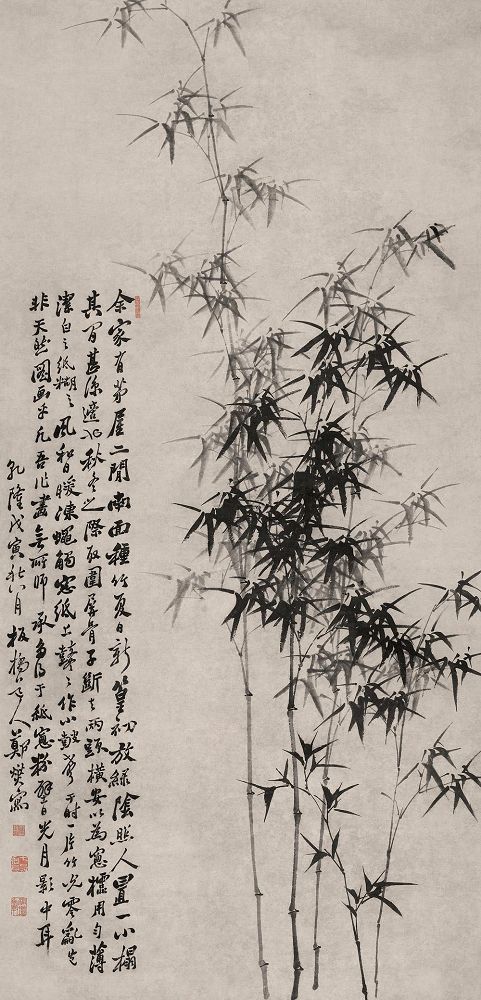 余家有茅屋二間南面種竹夏日新篁初放綠陰照人置一小榻
其間甚涼適也秋冬之際取圍屏骨子斷去兩頭橫安以為窓櫺用勻薄
潔白之紙糊之風和日暖凍蠅觸窓紙上鼕々作小皷聲于時一片竹零亂豈
非天然圖画乎凡吾作畫無所師承多得于紙窓粉壁日光月影中耳
乾隆戊寅秋八月板橋道人鄭燮寫